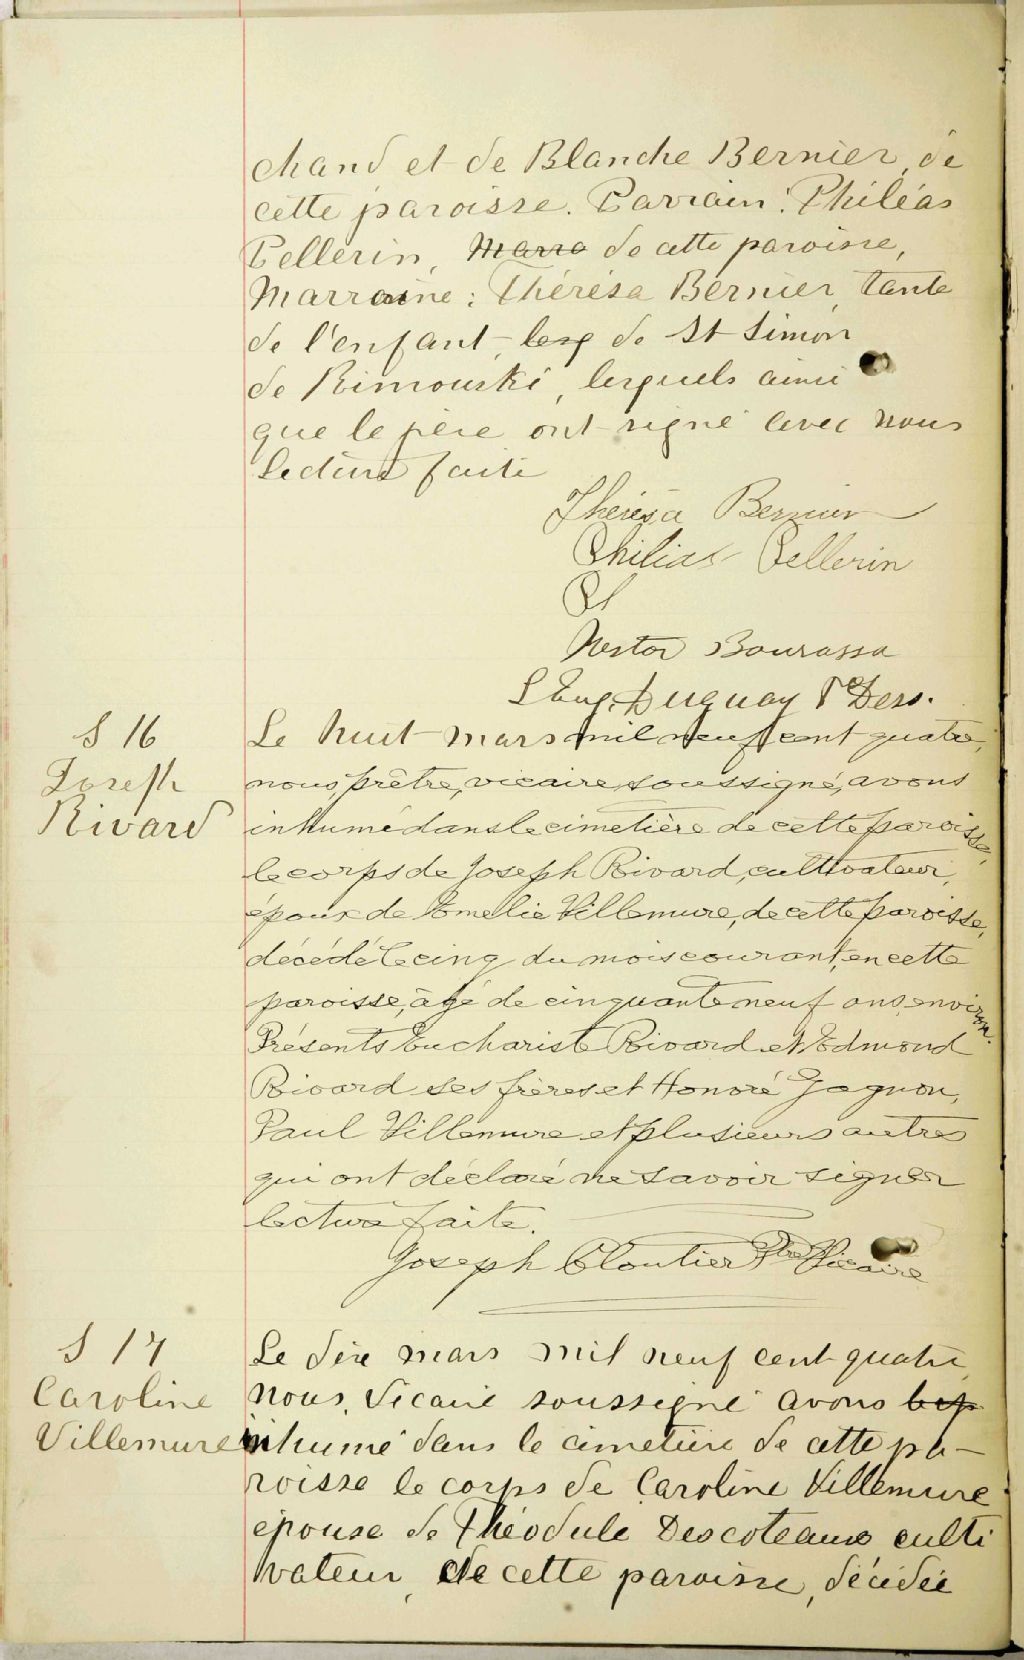 chand et de Blanche Bernier, de
cette paroisse. Parrain: Philéas
Pellerin, Marra de cette paroisse,
Marraine: Thérésa Bernier, tante
de l'enfant, lesq de St Simon
de Rimouski, lesquels ainsi
que le père ont signé avec nous
Lecture faite
Thérésa Bernier
Philias Pellerin
Ph
Nestor Bourassa
L Eug. Duguay Ptre Dess.
S 16
Joseph
Rivard
Le huit mars mil neuf cent quatre,
nous, prêtre, vicaire, soussigné, avons
inhumé dans le cimetière de cette paroisse,
le corps de Joseph Rivard, cultivateur,
époux de Emelie Villemure, de cette paroisse,
décédé le cinq du mois courant, en cette
paroisse, âgé de cinquante neuf ans, environ.
Présents Euchariste Rivard et Edmond
Rivard ses frères et Honoré Gagnon,
Paul Villemure et plusieurs autres
qui ont déclaré ne savoir signer
lecture faite.
Joseph Cloutier Ptre Vicaire
S 17
Caroline
Villemure
Le dix mars mil neuf cent quatre
nous, Vicaire soussigné avons lep
inhumé dans le cimetière de cette pa-
roisse le corps de Caroline Villemure
épouse de Théodule Descoteaux culti
vateur, de cette paroisse, décédée